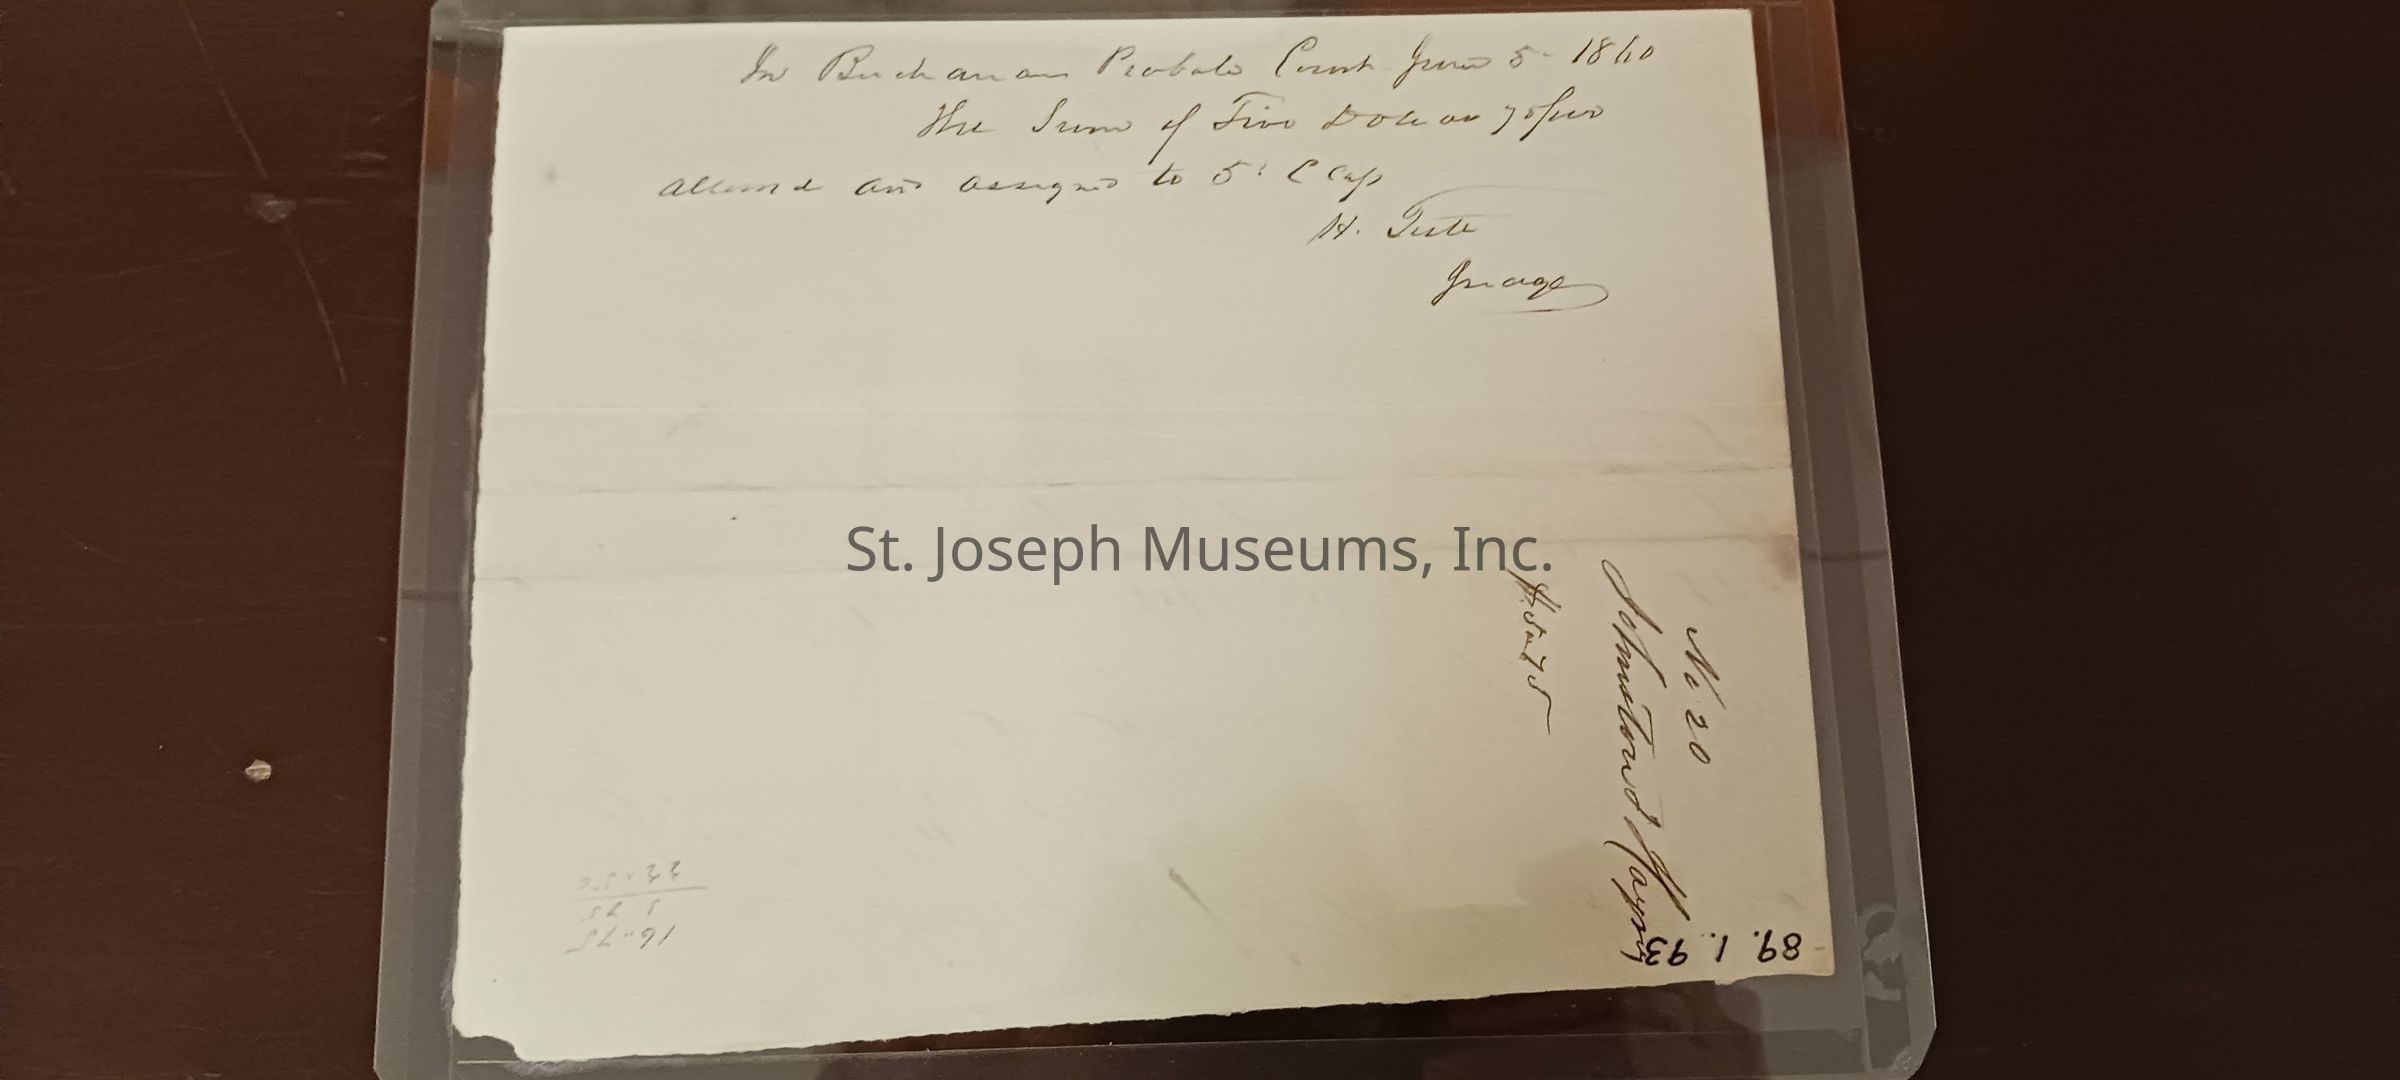 In Buchanan Probate Court June 5 - 1860
The Sum of Five Dollars 75/100
allowed and assigned to 5th Class
H. Tutt
Judge
St. Joseph Museums, Inc.
No 20
Johnston & Mayny
$5.75
89.1.93
16.75
5 75
22.50